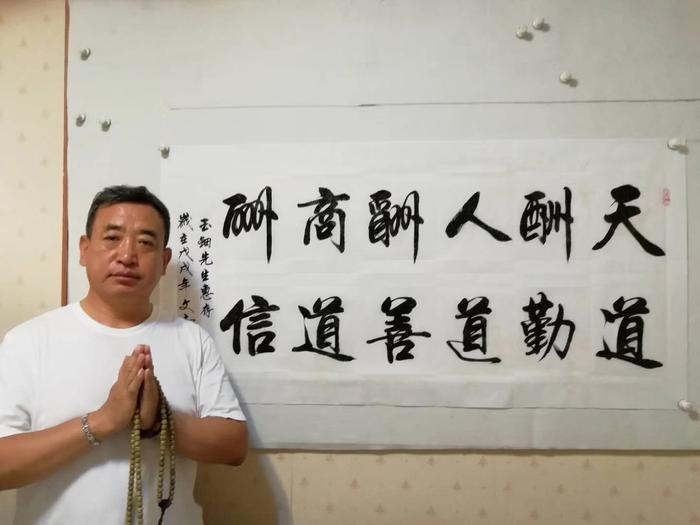 天道
酬勤
人道
酬善
商道
酬信
玉先生惠存
歲在戊戌年文